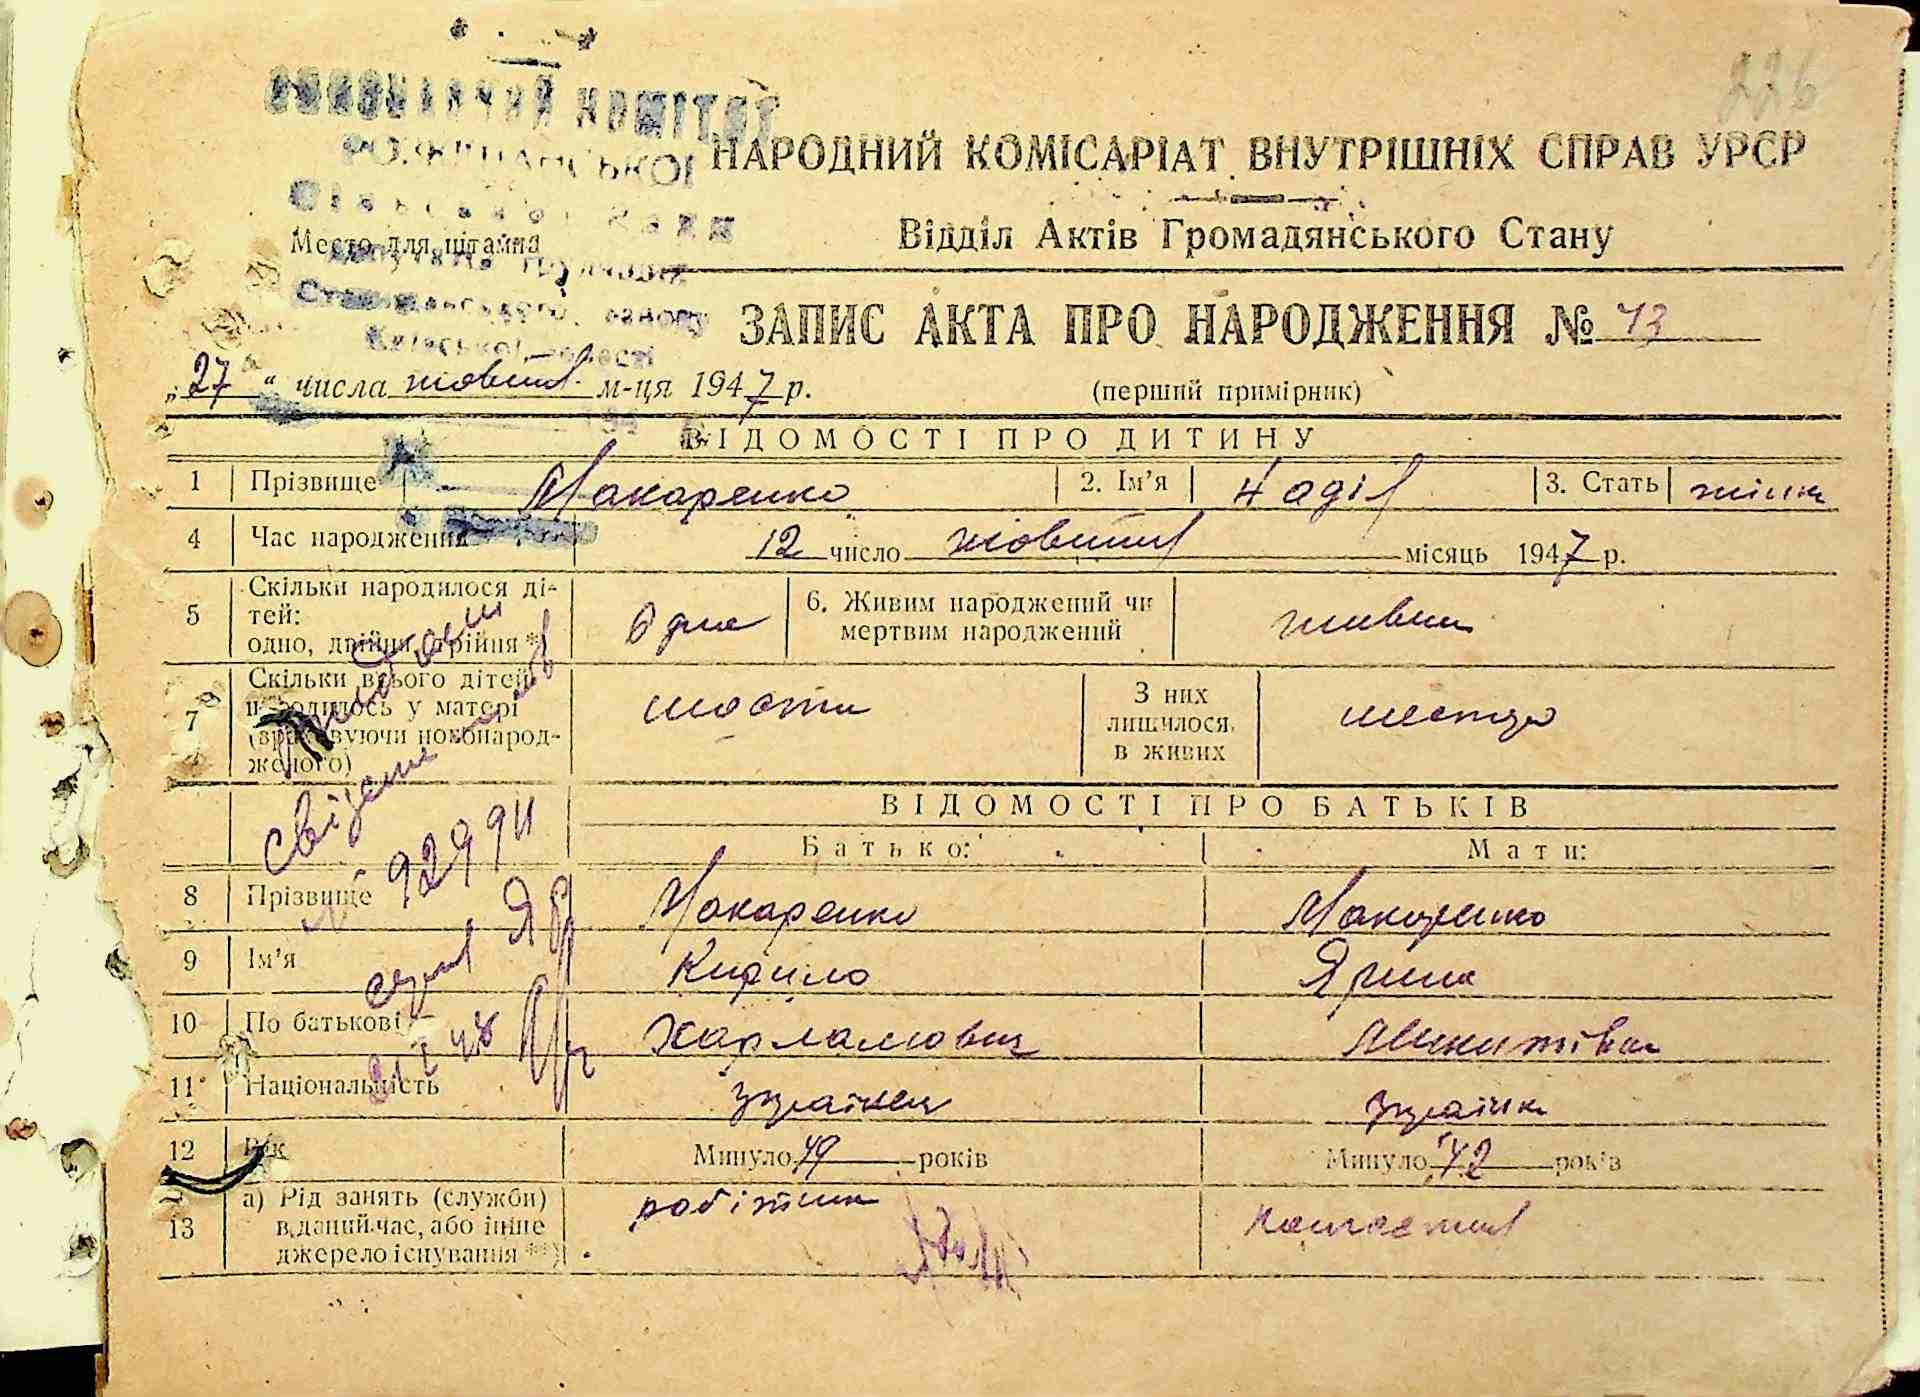 226
КОМІТЕТ
НАРОДНИЙ КОМІСАРІАТ ВНУТРІШНІХ СПРАВ УРСР
Место для штампа
Відділ Актів Громадянського Стану
ЗАПИС АКТА ПРО НАРОДЖЕННЯ № 43
„27“ числа жовтня м-ця 1947 р. (перший примірник)
ВІДОМОСТІ ПРО ДИТИНУ
1 Прізвище Макаренко 2. Ім'я Надія 3. Стать жіноч
4 Час народження 12 число жовтня місяць 1947 р.
5 Скільки народилося ді-
тей:
одно, двійня, трійня *) Одна 6. Живим народжений чи
мертвим народжений живим
7 Скільки всього дітей
народилось у матері
(враховуючи новонарод-
женого) шоста З них
лишилося
в живих шестеро
ВІДОМОСТІ ПРО БАТЬКІВ
Батько: Мати:
8 Прізвище Макаренко Макаренко
9 Ім'я Кирило Ярина
10 По батькові Харламович Микитівна
11 Національність українец українк
12 Вік Минуло 49 років Минуло 42 років
13 а) Рід занять (служби)
в даний час, або інше
джерело існування **) робітник колгоспниця
№ 92994
серия ЯБ
21 I 48